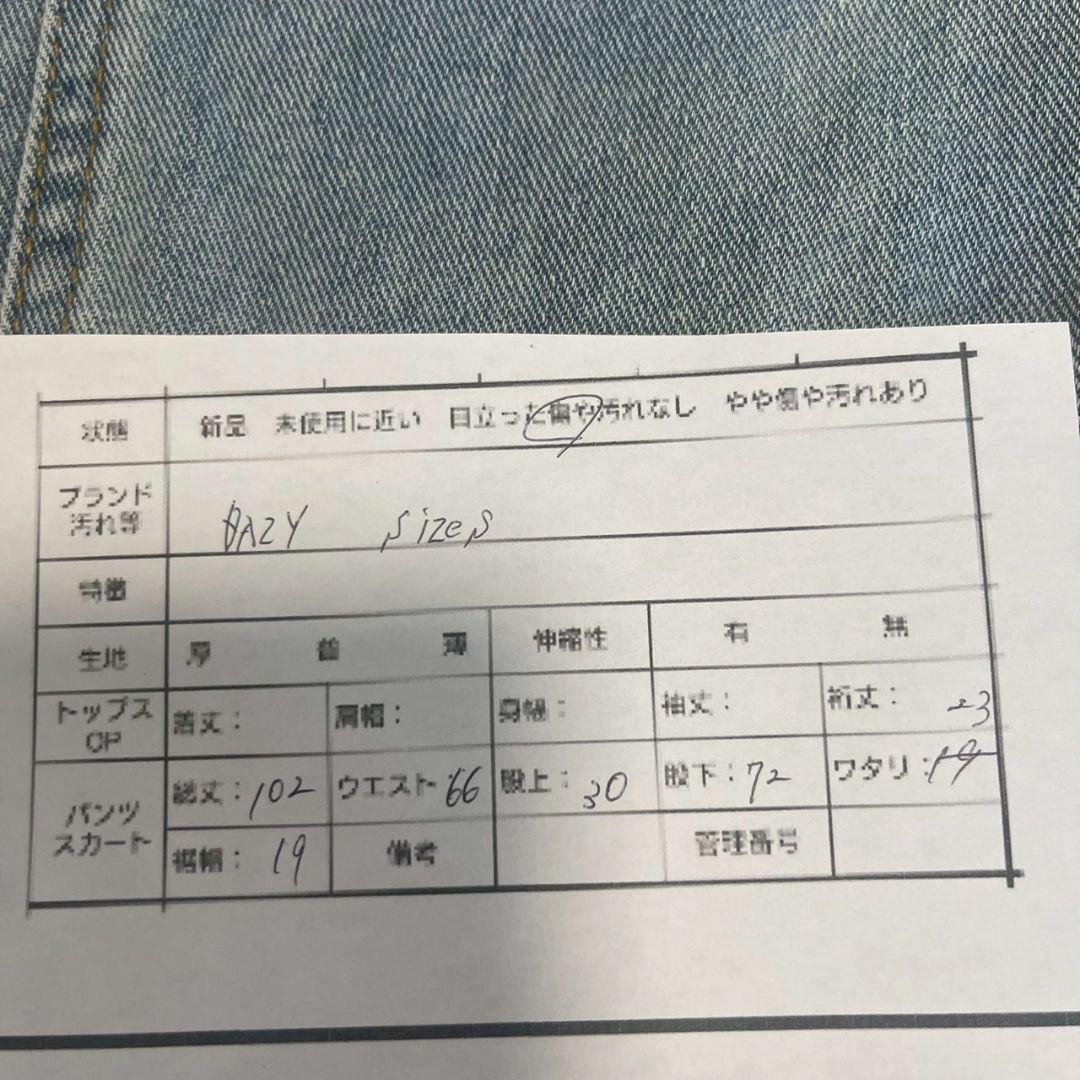 状態 新品 未使用に近い 目立った傷や汚れなし やや傷や汚れあり
ブランド
汚れ等
BAZY sizeS
特徴
生地 厚 普 薄 伸縮性 有 無
トップス
OP
着丈： 肩幅： 身幅： 袖丈： 裄丈： 23
パンツ
スカート
総丈：102 ウエスト 66 股上：30 股下：72 ワタリ：19
裾幅：19 備考 管理番号